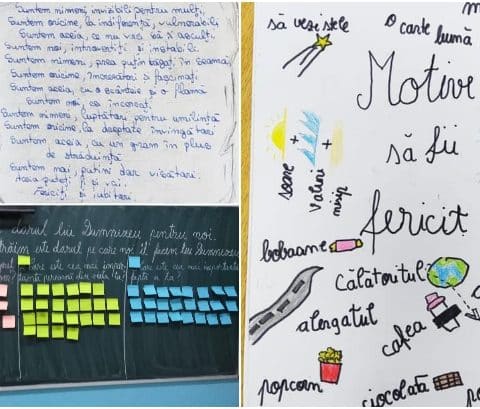 Suntem nimeni, invizibili pentru mulți,
Suntem oricine, la indiferență, vulnerabili
Suntem aceia, ce nu vrei să-i asculți
Suntem noi, introvertiți și instabili
Suntem nimeni, prea puțin băgați în seamă,
Suntem oricine, încrezători și fascinați
Suntem aceia, cu o scânteie și o flamă
Suntem noi, cei încercați
Suntem nimeni, luptători pentru umilință
Suntem oricine, la dreptate învingători
Suntem aceia, cu un gram în plus
de străduință
Suntem noi, puțini dar visători.
Așa puteți fi și voi
Fericiți și iubitori.
darul lui Dumnezeu pentru noi.
trăim este darul pe care noi îl facem lui Dumnezeu
care este cea mai
Care este cea mai importantă
persoană din viața ta?
faptă a ta?
să vezi stele
O carte bună
Motive
să fii
fericit
soare
+
valuri
+
nisip
bomboane
călătoritul
alergatul
cafea
popcorn
ciocolată